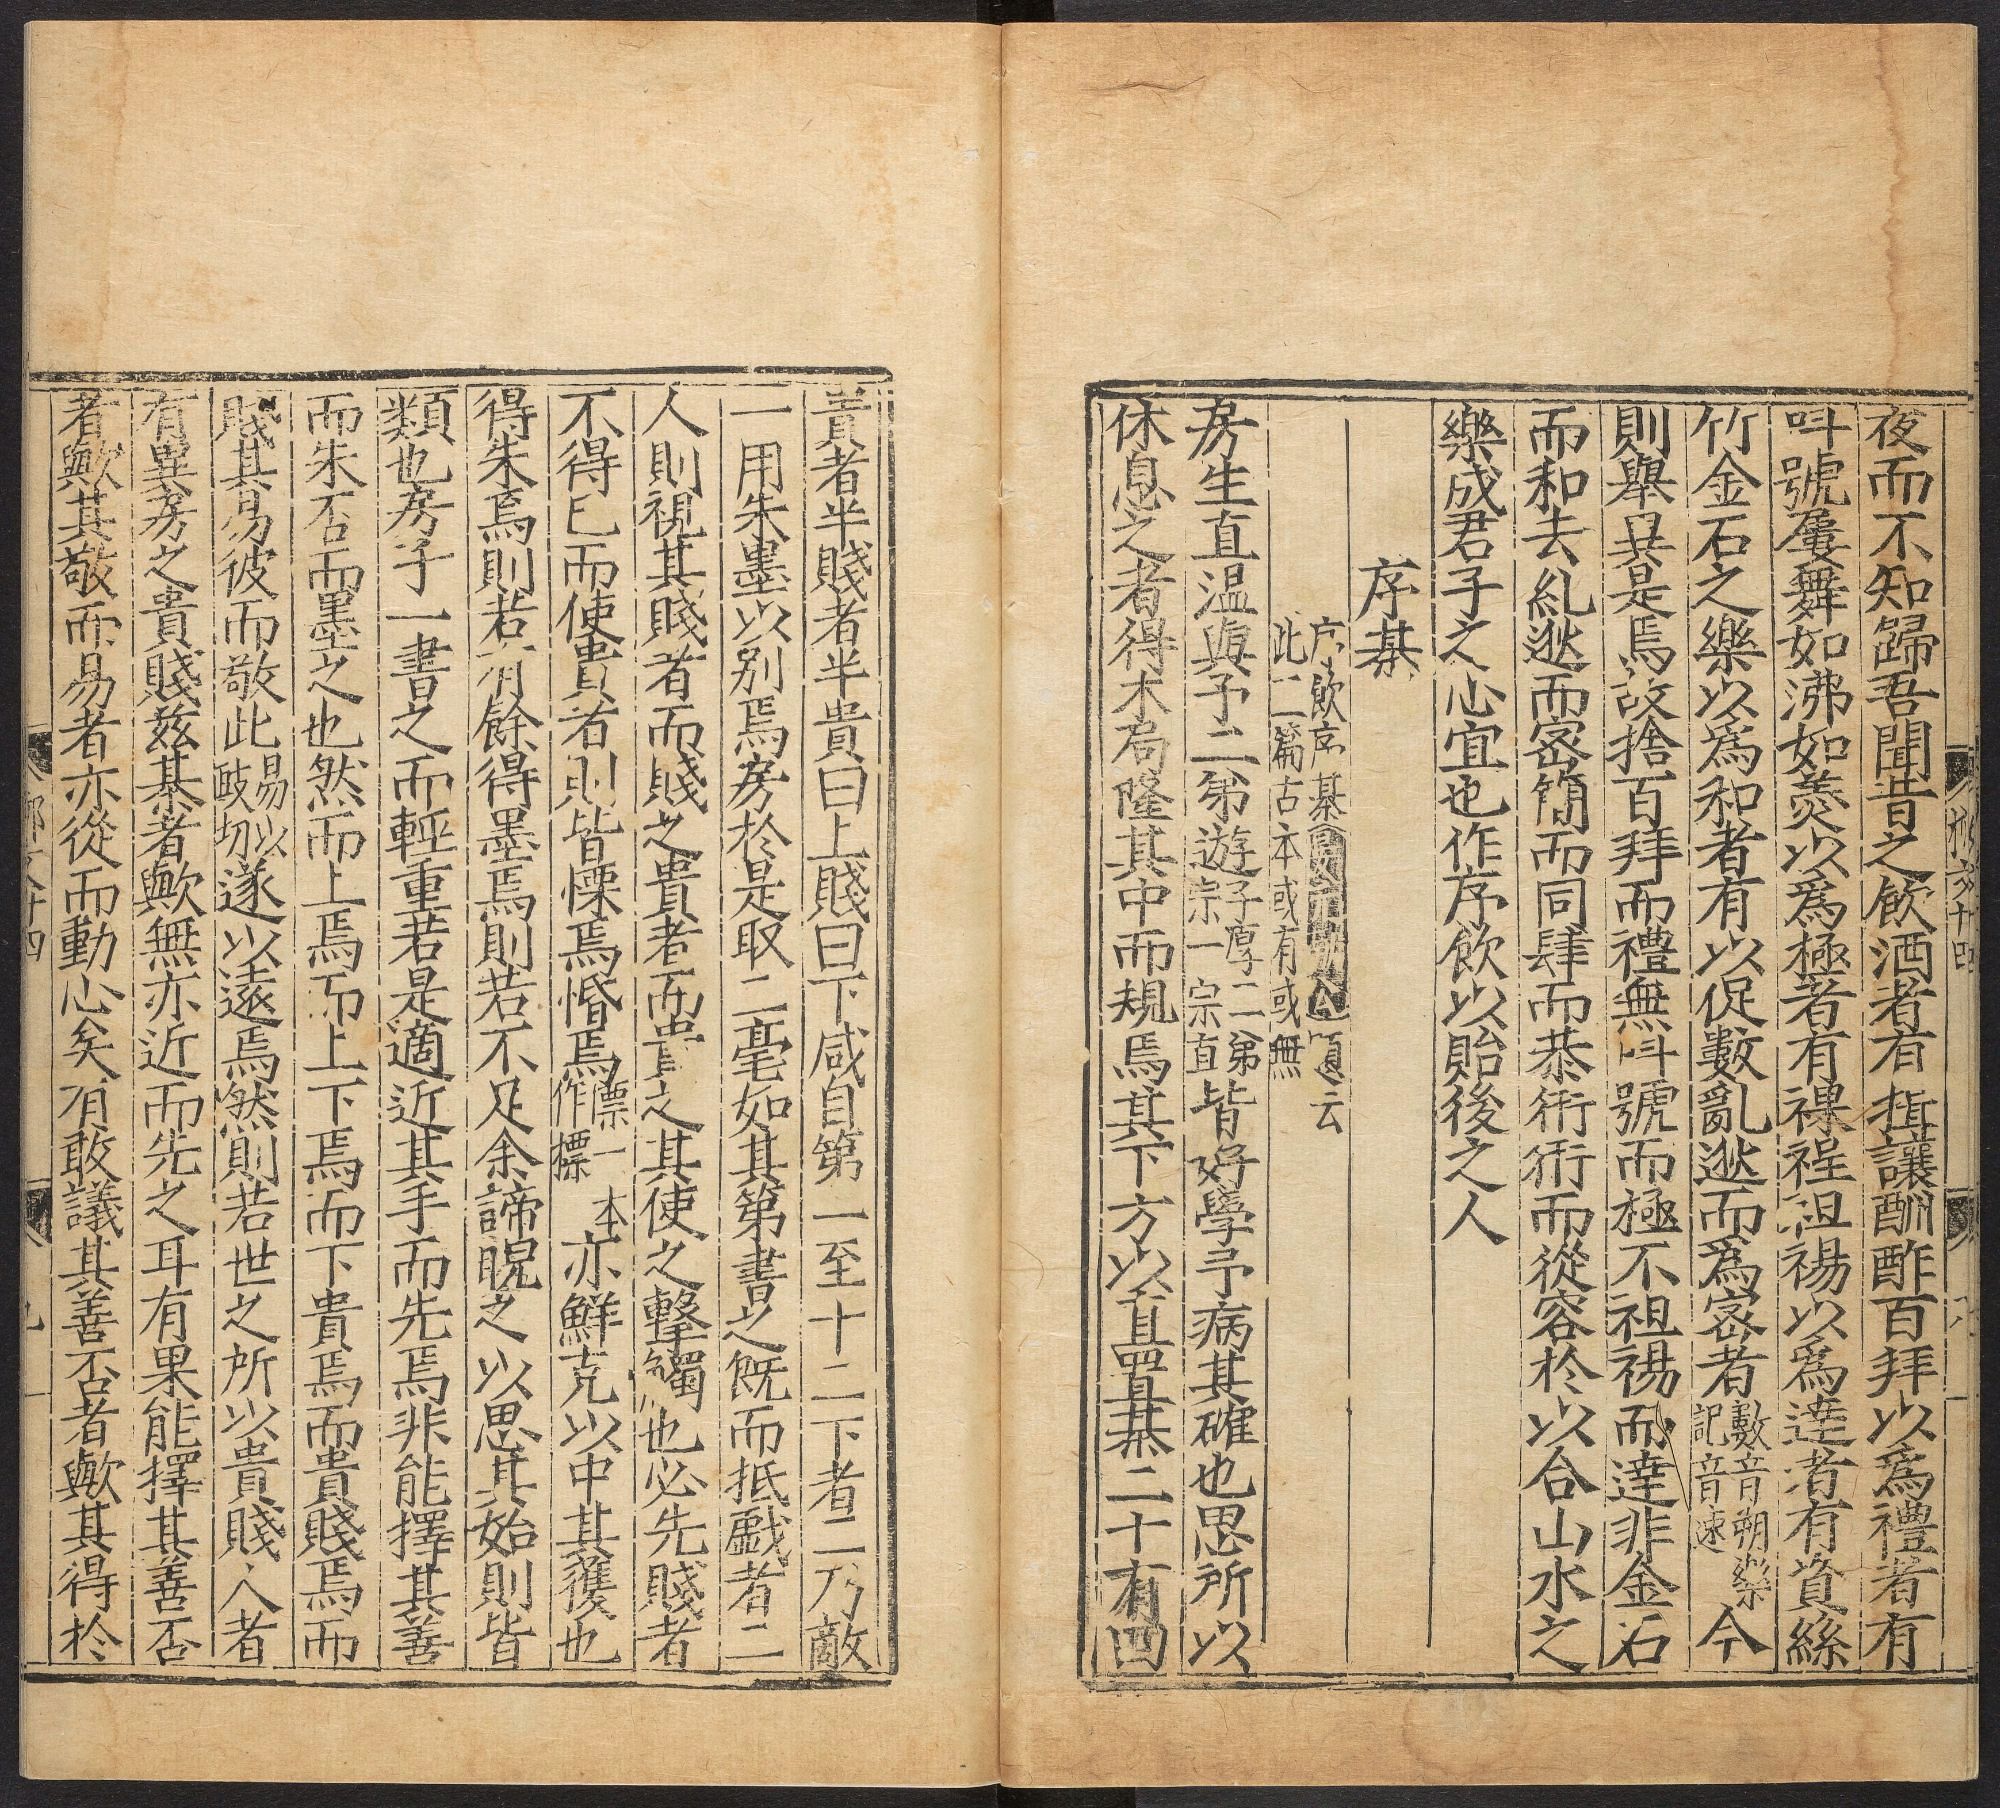 夜而不知歸吾聞昔之飲酒者有揖讓酬酢百拜以爲禮者有
叫號屢舞如沸如羹以爲極者有祼裎袒裼以爲達者有資絲
竹金石之樂以爲和者有以促數亂逖而爲密者數音朔樂記音速今
則舉異是焉故捨百拜而禮無叫號而極不袒裼而達非金石
而和去乱逖而密簡而同肆而恭衎衎而從容於以合山水之
樂成君子之心宜也作序飲以貽後之人
序棊
序飲序棊云
此二篇古本或有或無
房生直温與予二弟遊子厚二弟宗一宗直皆好學予病其確也思所以
休息之者得木局隆其中而規焉其下方以直置棊二十有四
貴者半賤者半貴曰上賤曰下咸自第一至十二下者二乃敵
一用朱墨以别焉房於是取二毫如其第書之既而抵戲者二
人則視其賤者而賤之貴者而貴之其使之擊觸也必先賤者
不得已而使貴者則皆慄焉惛焉慓一本作標亦鮮克以中其獲也
得朱焉則若有餘得墨焉則若不足余諦睨之以思其始則皆
類也房子一書之而輕重若是適近其手而先焉非能擇其善
而朱否而墨之也然而上焉而上下焉而下貴焉而貴賤焉而
賤其易彼而敬此易以䜴切遂以遠焉然則若世之所以貴賤人者
有異房之貴賤兹棊者歟無亦近而先之耳有果能擇其善否
者歟其敬而易者亦從而動心矣有敢議其善否者歟其得於